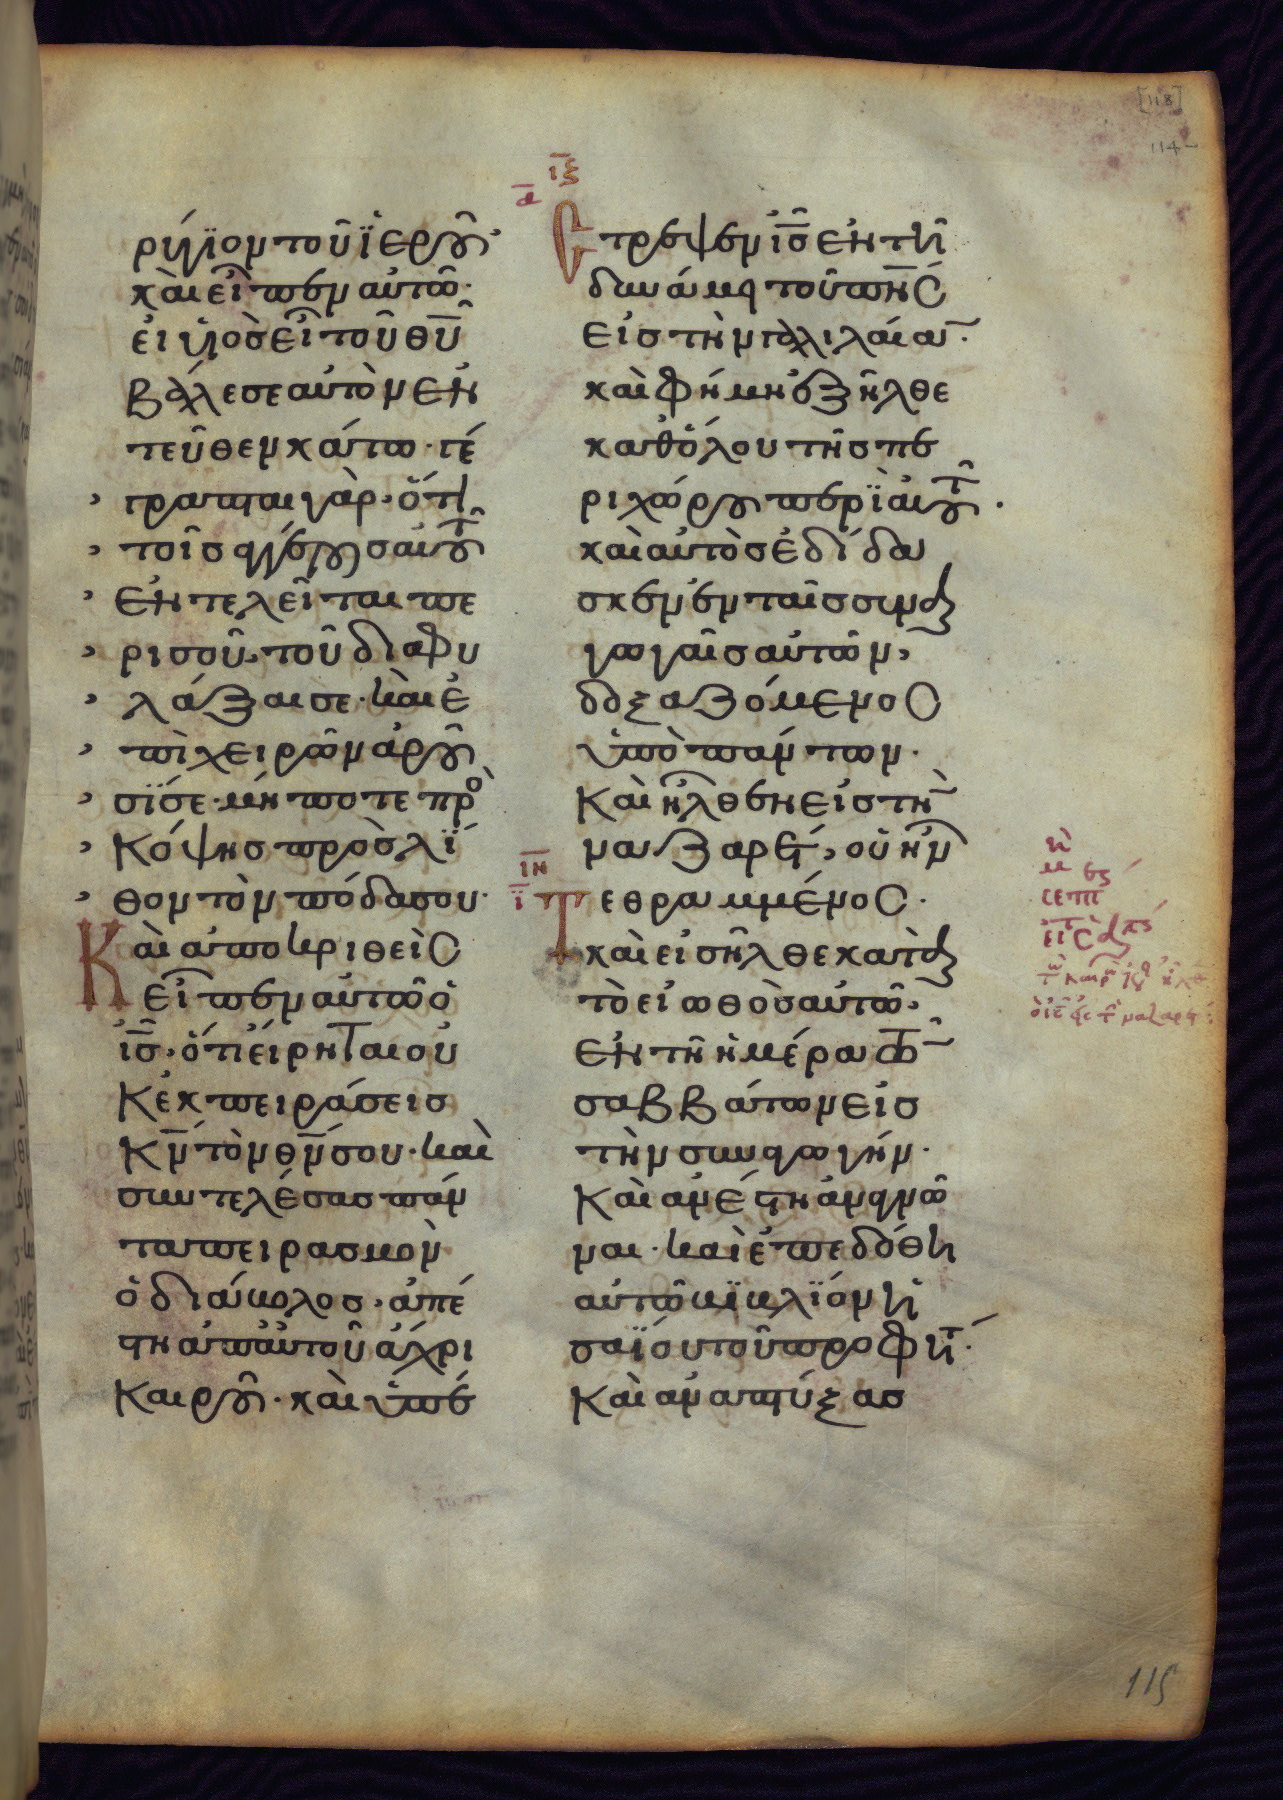 [118]
114
ρύγϊον τοῦ ϊεροῦ·
καὶ εἶπεν αὐτῶ·
εἰ υἱὸσ εἶ τοῦ θ̅υ̅
βάλε σεαυτὸν ἐν
τεῦθεν κάτω· γέ
γραπται γὰρ· ὅτι
τοῖσ ἀγγέλοισ αὐτοῦ
ἐντελεῖται πε
ρι σοῦ· τοῦ διαφυ
λάξαι σε· καὶ ἐ
πὶ χειρῶν ἀροῦ
σϊ σε· μή ποτε προ
κόψησ πρὸσ λί
θον τὸν πόδα σου·
Καὶ ἀποκριθεὶσ
εἶπεν αὐτῶ ὁ
ι̅σ̅· ὅτι εἴρηται οὐ
κ ἐκπειράσεισ
κ̅ν̅ τὸν θ̅ν̅ σου· καὶ
συντελέσασ πάν
τα πειρασμὸν
ὁ διάβολοσ· ἀπέ
στη ἀπ' αὐτοῦ ἄχρι
καιροῦ· καὶ ὑπέ
ι̅ξ̅
α̅
στρεψεν ὁ ι̅σ̅ ἐν τῆ
δυνάμει τοῦ π̅ν̅σ̅
εἰσ τὴν γαλιλαίαν·
καὶ φήμη ἐξῆλθε
καθ' ὅλου τῆσ πε
ριχώρου περὶ αὐτοῦ·
καὶ αὐτὸσ ἐδίδα
σκεν ἐν ταῖσ συνα
γωγαῖσ αὐτῶν,
δοξαζόμενοσ
ὑπὸ πάντων·
Καὶ ἦλθεν εἰσ τὴν
ναζαρέτ, οὗ ἦν
ι̅η̅
ι̅
Τεθραμμένοσ·
καὶ εἰσῆλθε κατὰ
τὸ εἰωθὸσ αὐτῶ,
ἐν τῆ ἡμέρα τῶν
σαββάτων εἰσ
τὴν συναγωγήν·
Καὶ ἀνέστη ἀναγνῶ
ναι· καὶ ἐπεδόθη
αὐτῶ βϊβλϊόν ἡ
σαΐου τοῦ προφήτου·
Καὶ ἀναπτύξασ
115